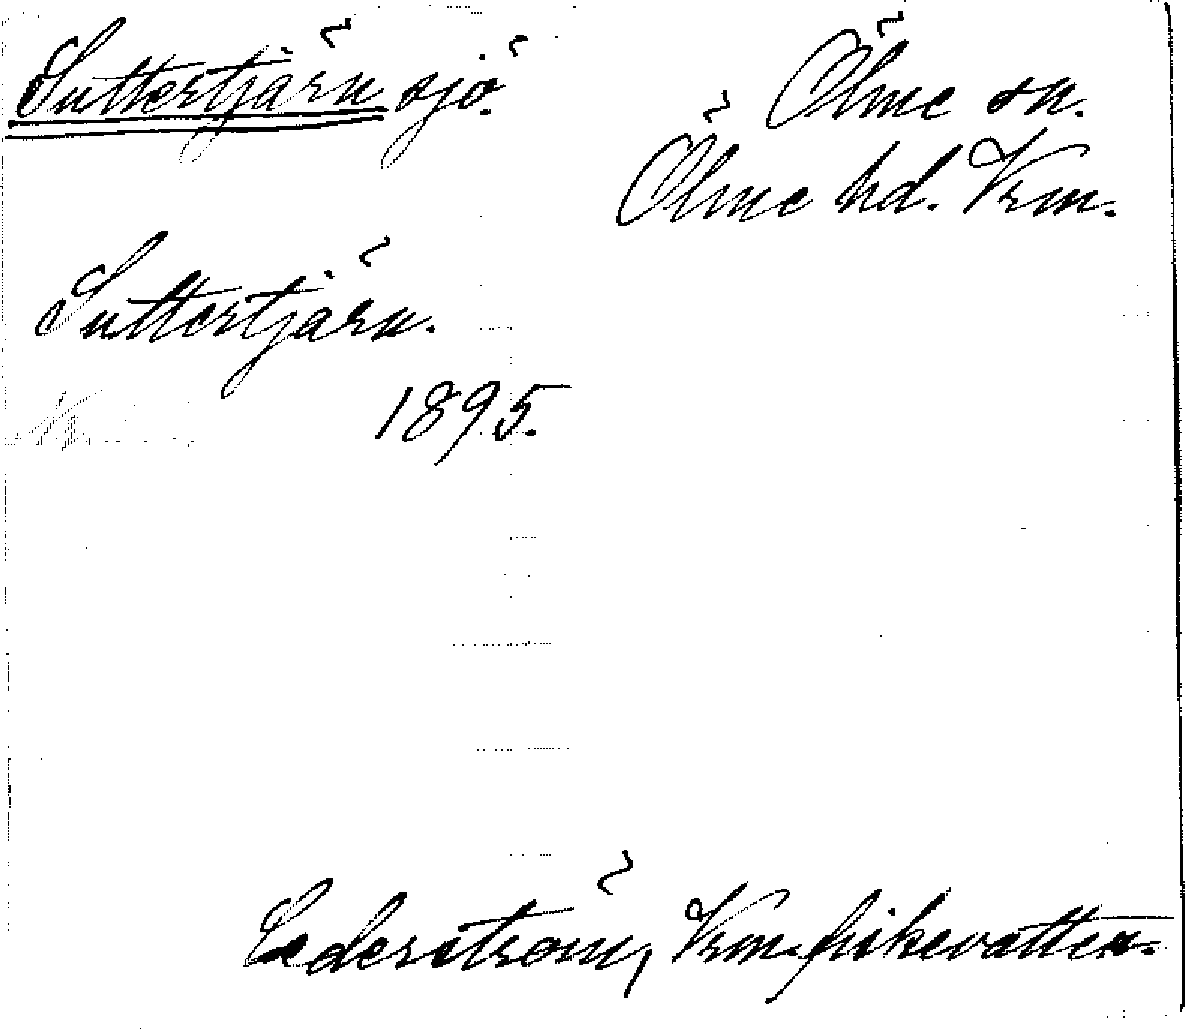 Suttertjärn sjö. Ölme sn.
Ölme hd. Vrm.
Suttertjärn.
1895.
Cederström, Vrm. fiskevatten.